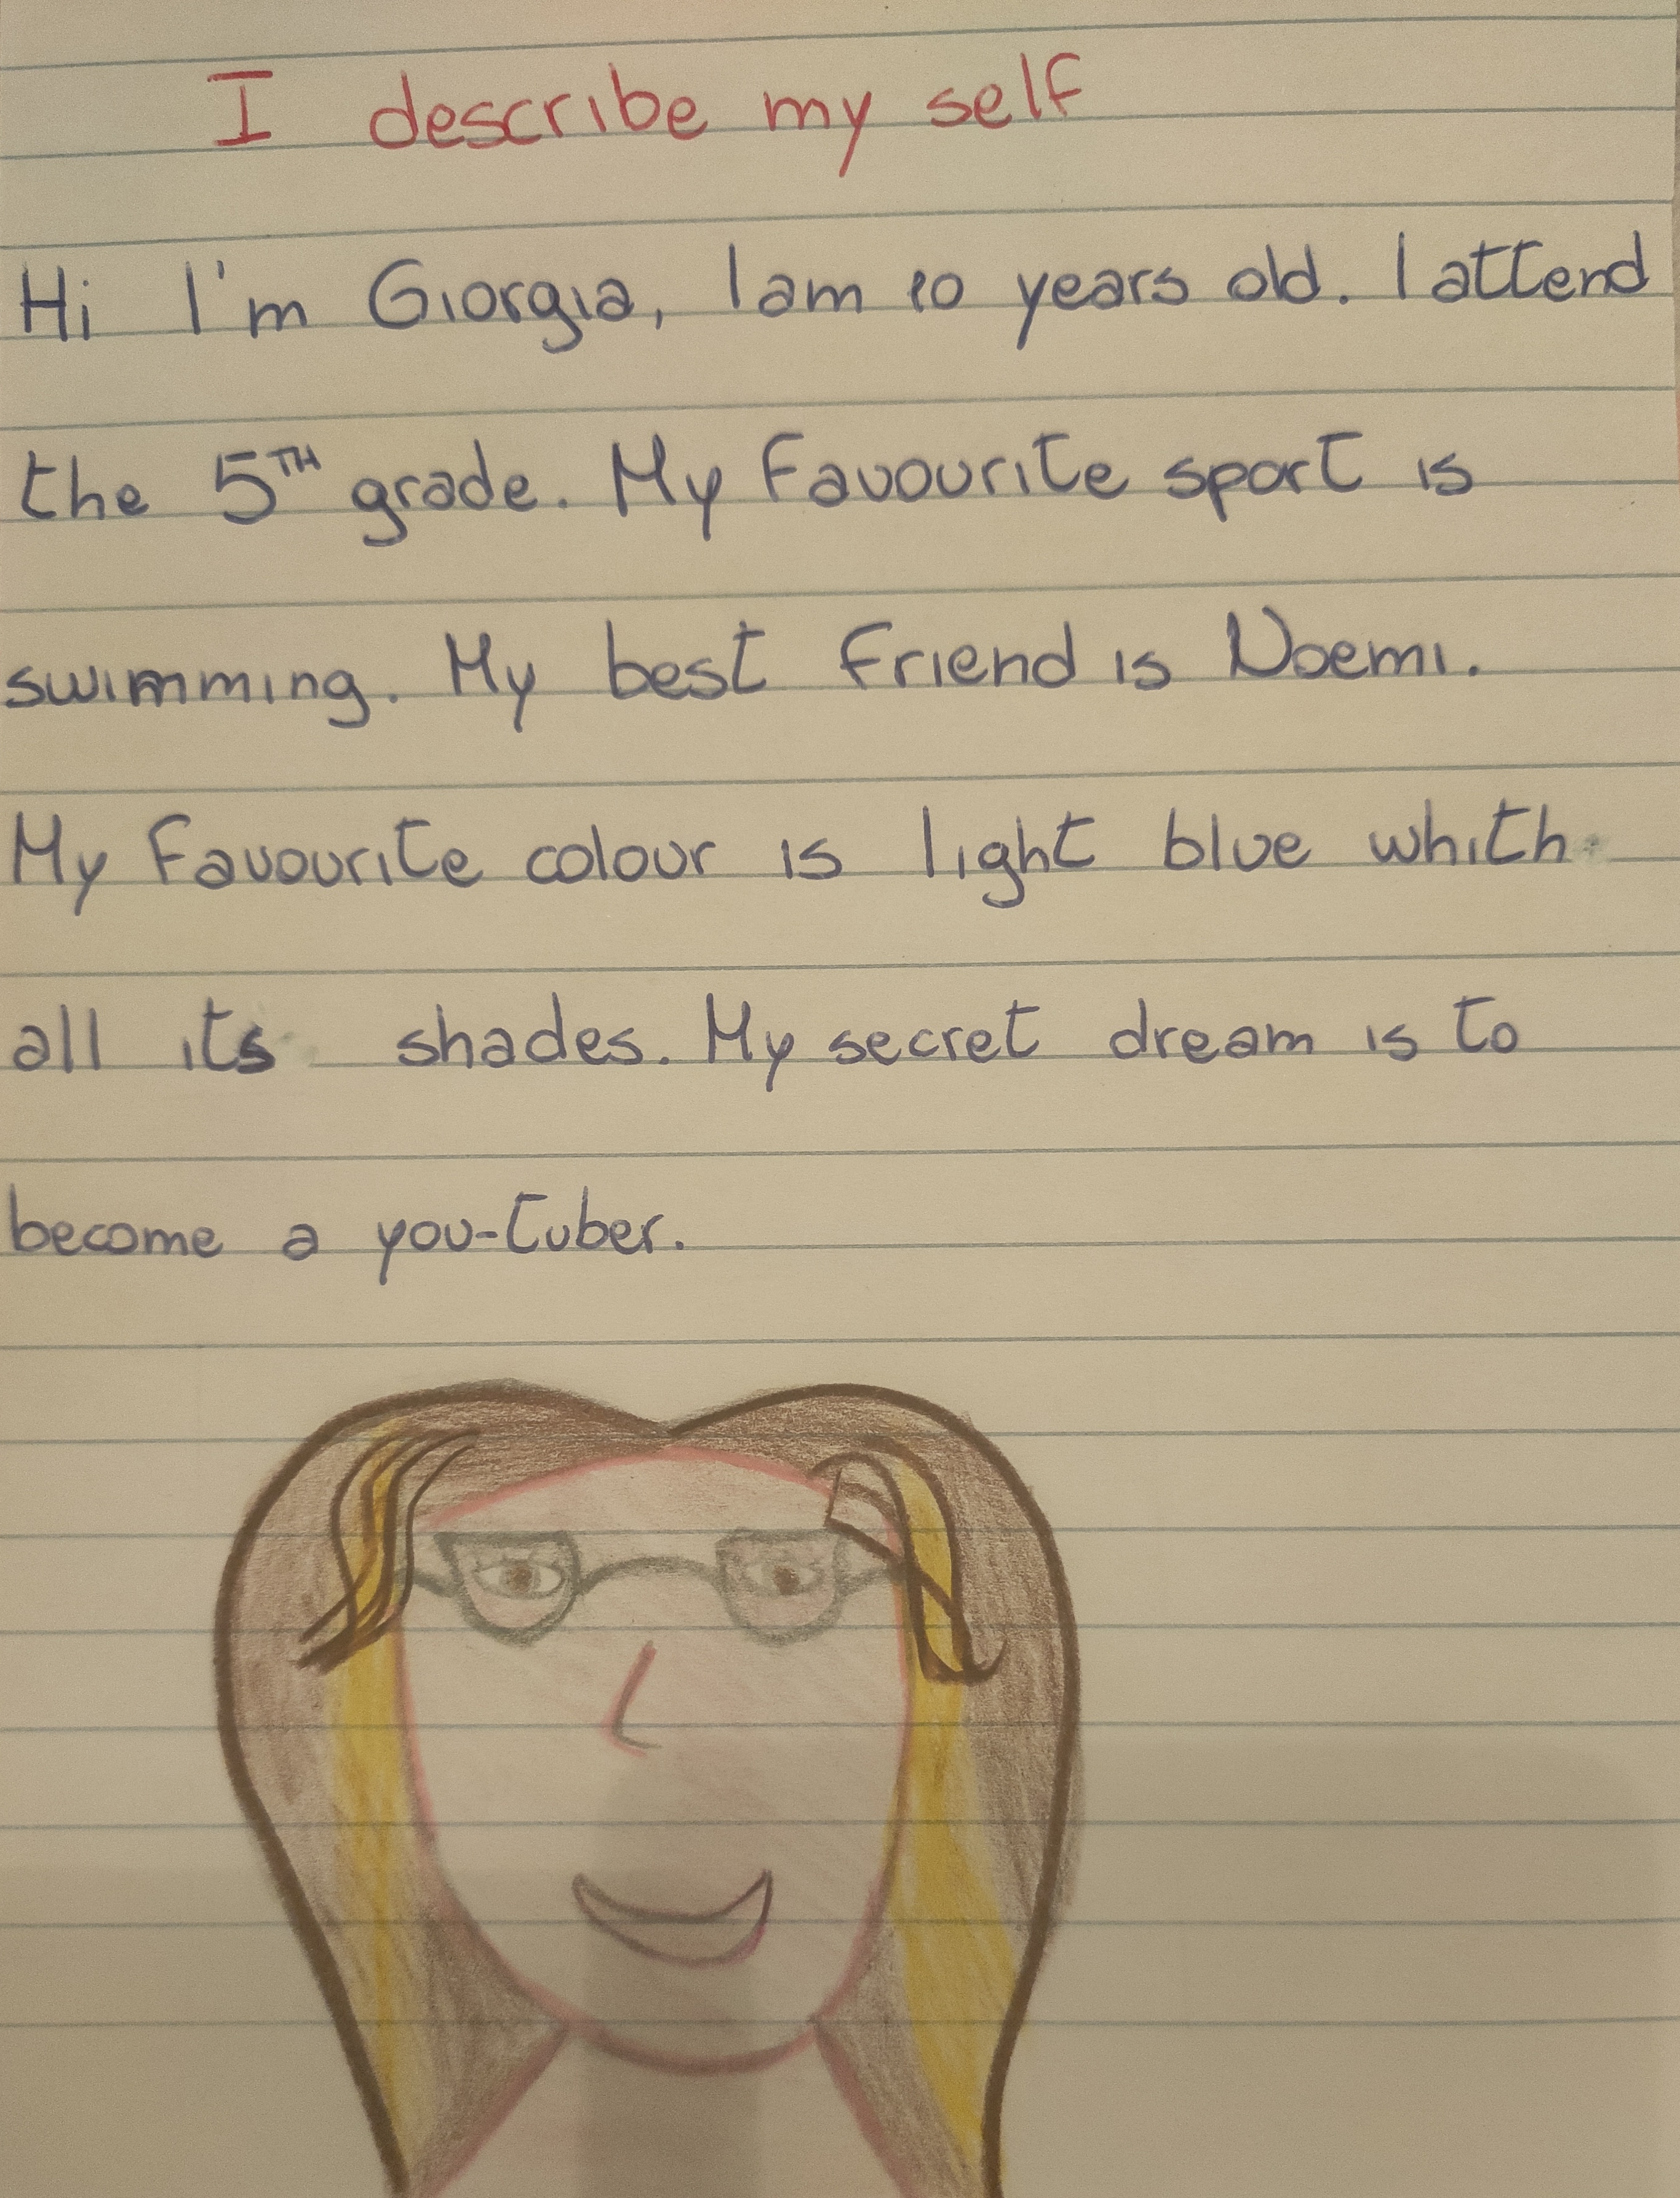 I describe my self
Hi I'm Giorgia, I am 10 years old. I attend
the 5TH grade. My favourite sport is
swimming. My best friend is Noemi.
My favourite colour is light blue whith
all its shades. My secret dream is to
become a you-tuber.